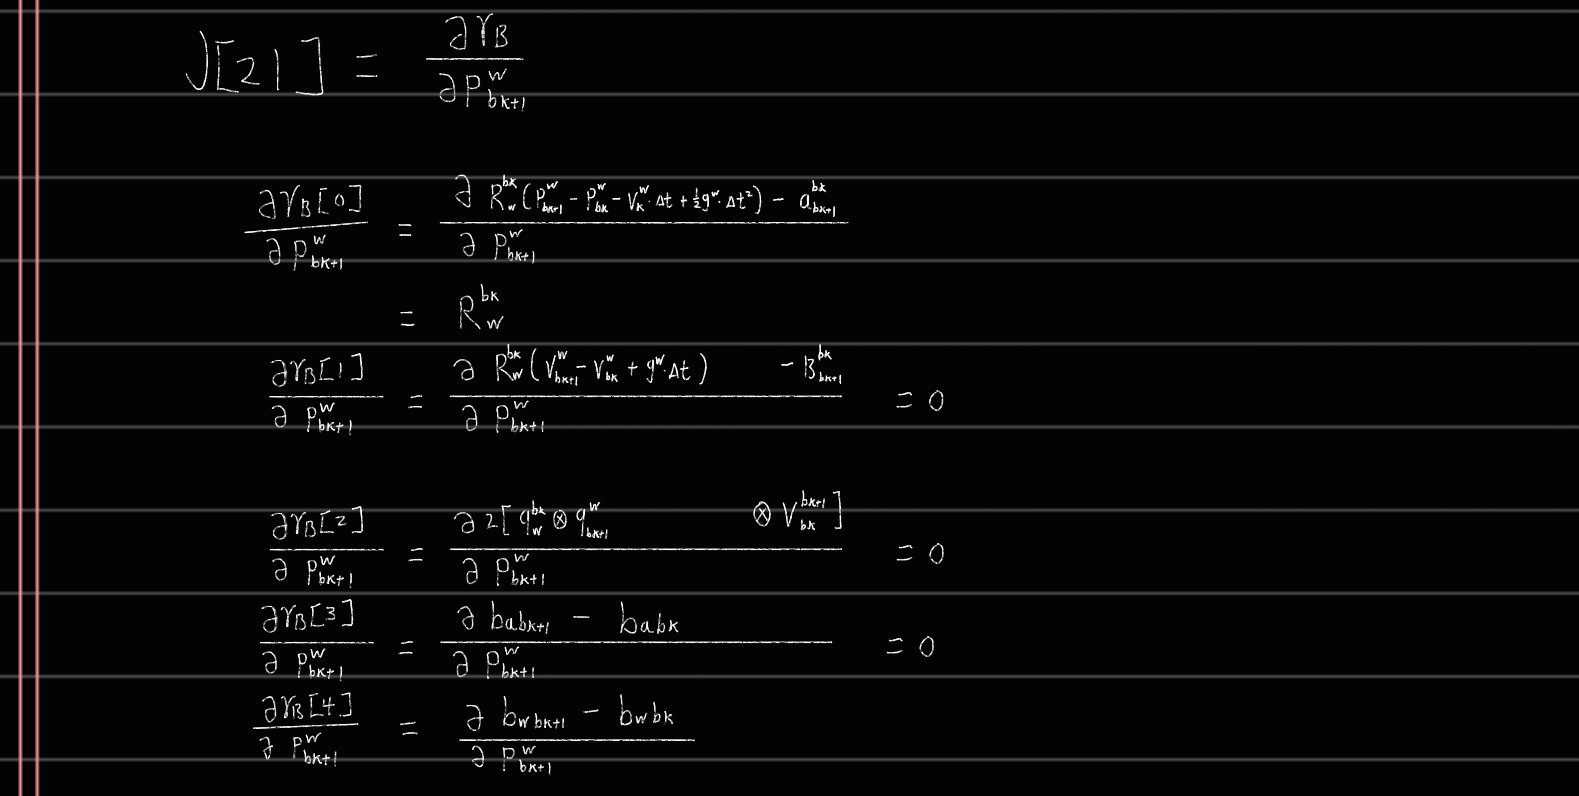 J[21] = ∂r_B / ∂P^w_{bk+1}
∂r_B[0] / ∂P^w_{bk+1} = ∂ R^{bk}_w (P^w_{bk+1} - P^w_{bk} - V^w_k · Δt + ½ g^w · Δt²) - a^{bk}_{bk+1} / ∂ P^w_{bk+1}
= R^{bk}_w
∂r_B[1] / ∂P^w_{bk+1} = ∂ R^{bk}_w (V^w_{bk+1} - V^w_{bk} + g^w · Δt) - B^{bk}_{bk+1} / ∂ P^w_{bk+1} = 0
∂r_B[2] / ∂P^w_{bk+1} = ∂ 2[ q^{bk}_w ⊗ q^w_{bk+1} ⊗ V^{bk+1}_{bk} ] / ∂ P^w_{bk+1} = 0
∂r_B[3] / ∂P^w_{bk+1} = ∂ b_{abk+1} - b_{abk} / ∂ P^w_{bk+1} = 0
∂r_B[4] / ∂P^w_{bk+1} = ∂ b_{wbk+1} - b_{wbk} / ∂ P^w_{bk+1}